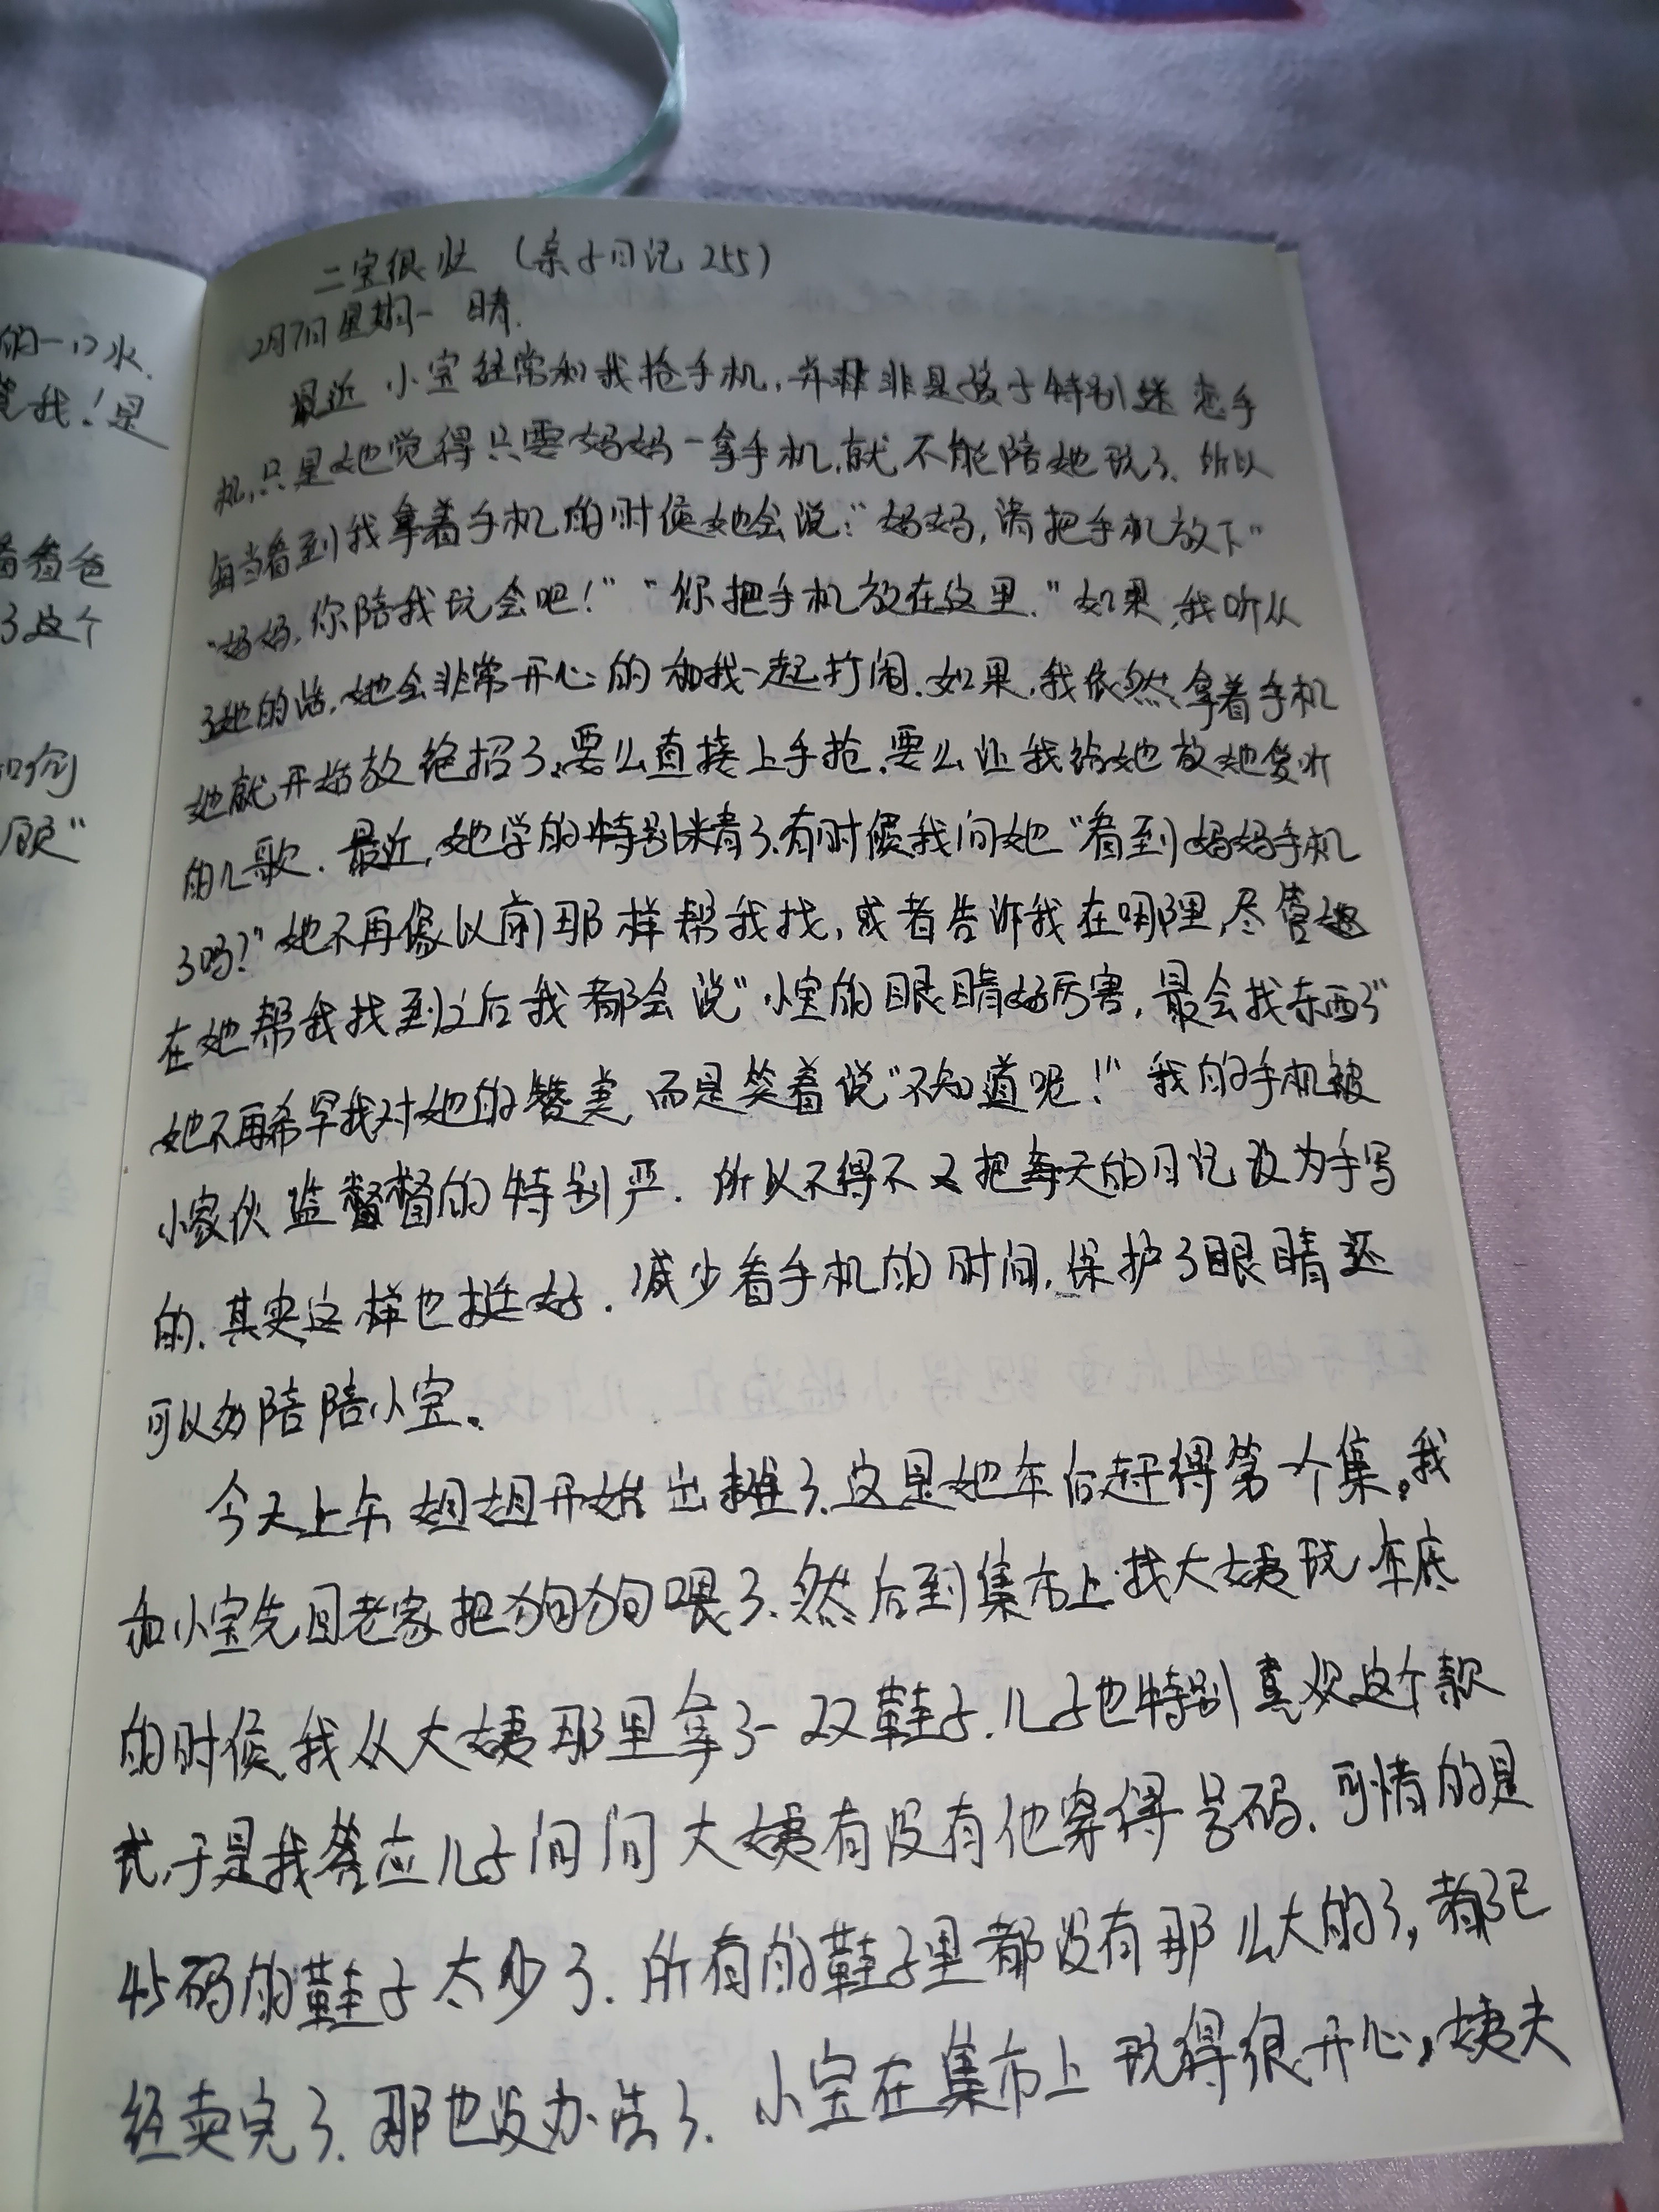 的一口水.
我！是
着爸
了这个
如何
顾"
二宝很 (亲子日记 255)
2月7日 星期一 晴.
最近 小宝经常和我抢手机,并非是孩子特别迷恋手
机,只是她觉得只要妈妈一拿手机,就不能陪她玩了.所以
每当看到我拿着手机的时候她会说:"妈妈,请把手机放下"
"妈妈,你陪我玩会吧！" "你把手机放在这里."如果,我听从
了她的话,她会非常开心的和我一起打闹.如果,我依然拿着手机
她就开始放绝招了,要么直接上手抢,要么让我给她放她爱听
的儿歌.最近,她学的特别精了.有时候我问她"看到妈妈手机
了吗?"她不再像以前那样帮我找,或者告诉我在哪里,尽管
在她帮我找到之后我都会说"小宝的眼睛好厉害,最会找东西了"
她不再希罕我对她的赞美,而是笑着说"不知道呢！"我的手机被
小家伙监督的特别严.所以不得不又把每天的日记改为手写
的.其实这样也挺好.减少看手机的时间,保护了眼睛还
可以多陪陪小宝。
今天上午,姐姐开始出摊了.这是她年后赶得第一个集。我
和小宝先回老家把狗狗喂了.然后到集市上找大姨玩.年底
的时候,我从大姨那里拿了一双鞋子.儿子也特别喜欢这个款
式,于是我答应儿子问问大姨有没有他穿得号码.可惜的是
45码的鞋子太少了.所有的鞋子里都没有那么大的了,都已
经卖完了.那也没办法了.小宝在集市上玩得很开心,姨夫